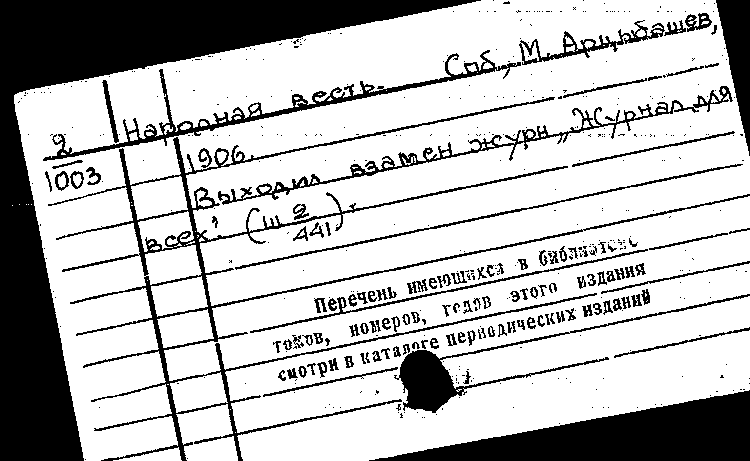 Народная весть. Спб, М. Арцыбашев,
2
1003
1906.
Выходил взамен журн „Журнал для
всех". (Ш 2
441).
Перечень имеющихся в библиотеке
томов, номеров, годов этого издания
смотри в каталоге периодических изданий